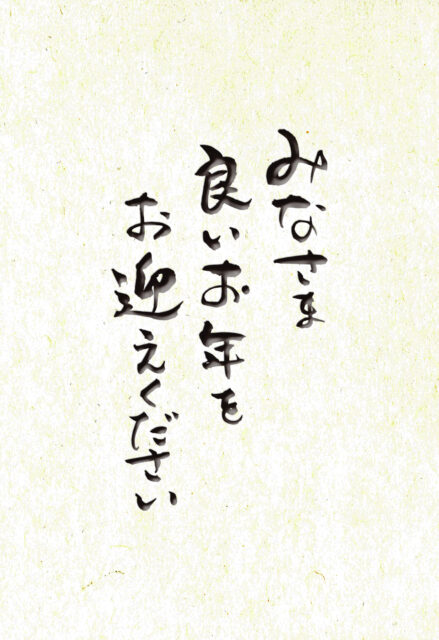 みなさま
良いお年を
お迎えください